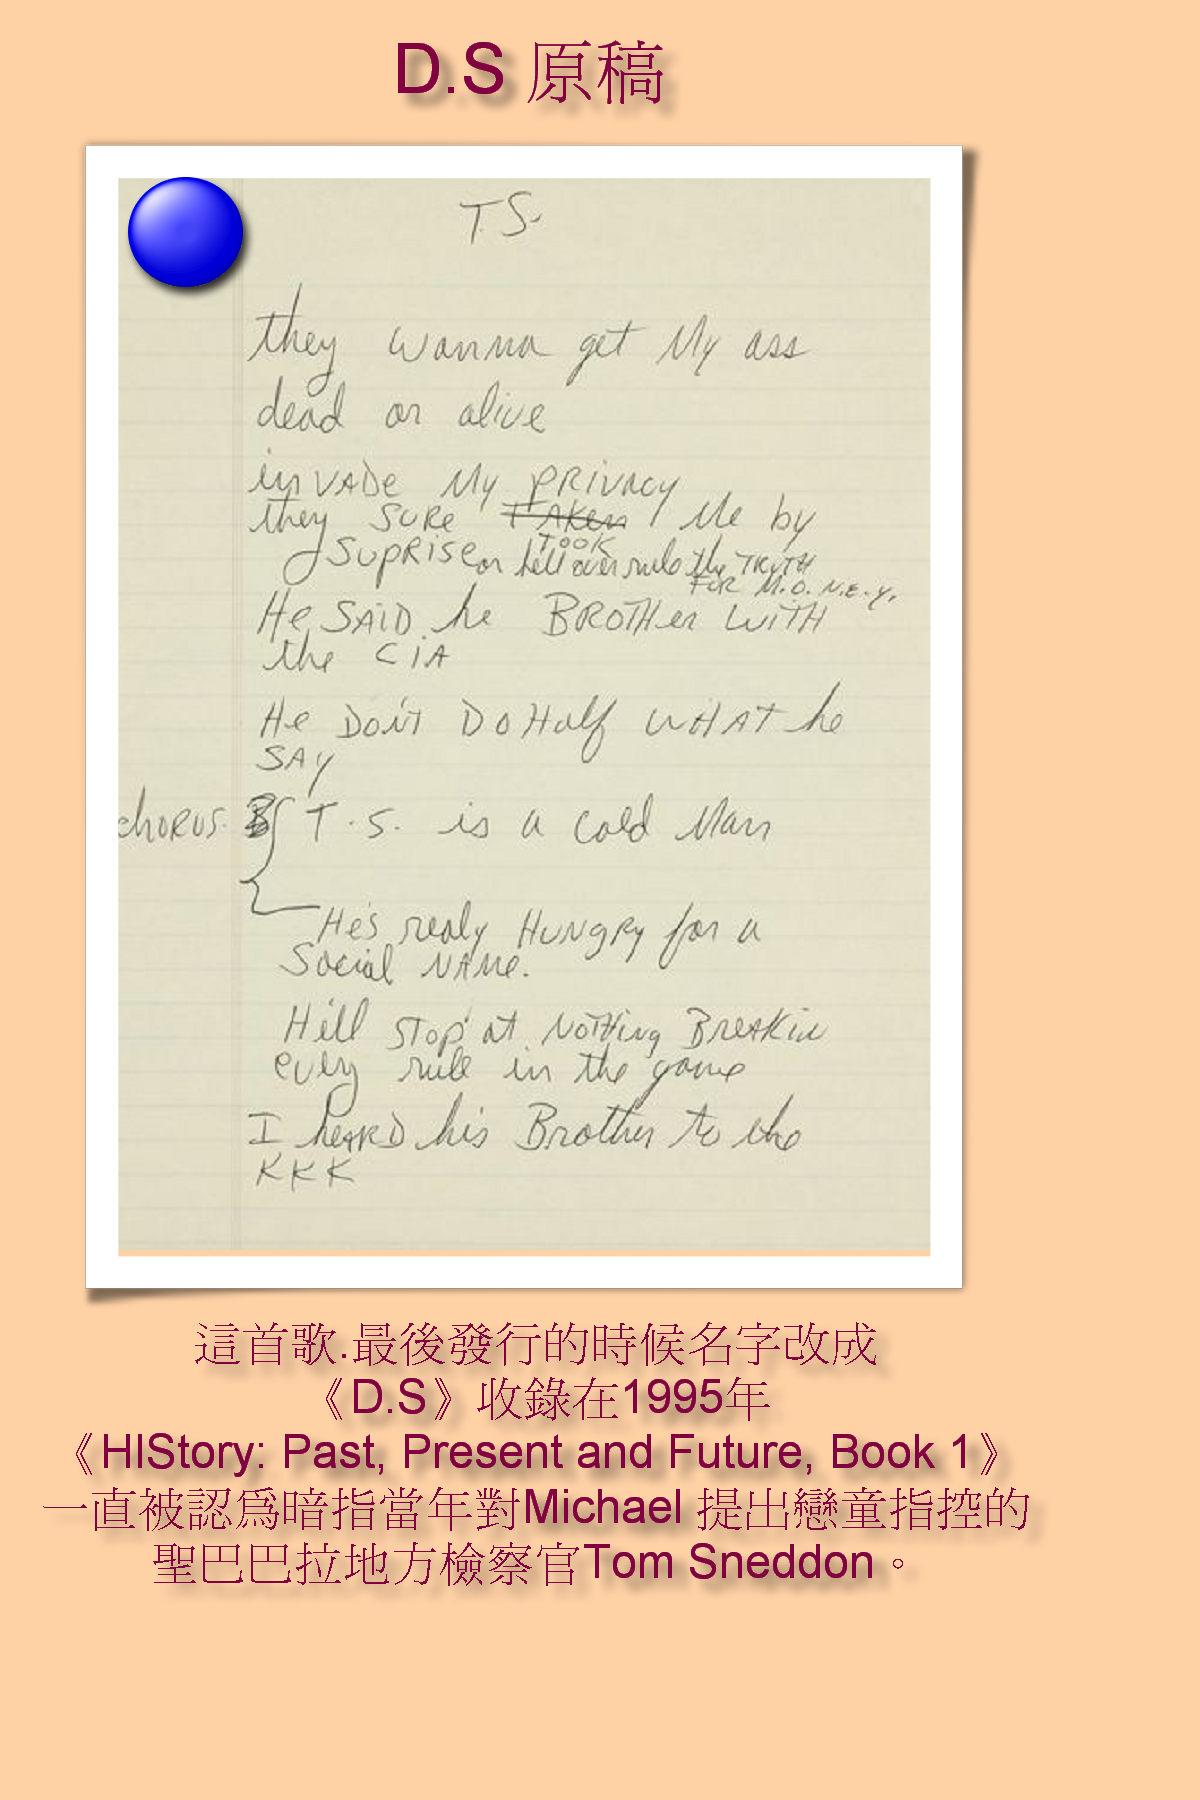 D.S 原稿
T.S.
they wanna get My ass
dead or alive
inVADe My PRIVACY
they SURe TAKen Me by
TOOK
SUPRISe or hell over rule the TRUTH
FOR M.O.N.E.Y.
He SAID he BROTHer WITH
the CIA
He DON'T DO Half WHAT he
SAY
chORUS. B T.S. is a cold Man
He's realy HUNgRy for a
Social NAMe.
He'll STOP at NOTHing BreaKin
every rule in the game
I heARD his Brother to the
KKK
這首歌.最後發行的時候名字改成
《D.S》收錄在1995年
《HIStory: Past, Present and Future, Book 1》
一直被認為暗指當年對Michael 提出戀童指控的
聖巴巴拉地方檢察官Tom Sneddon。